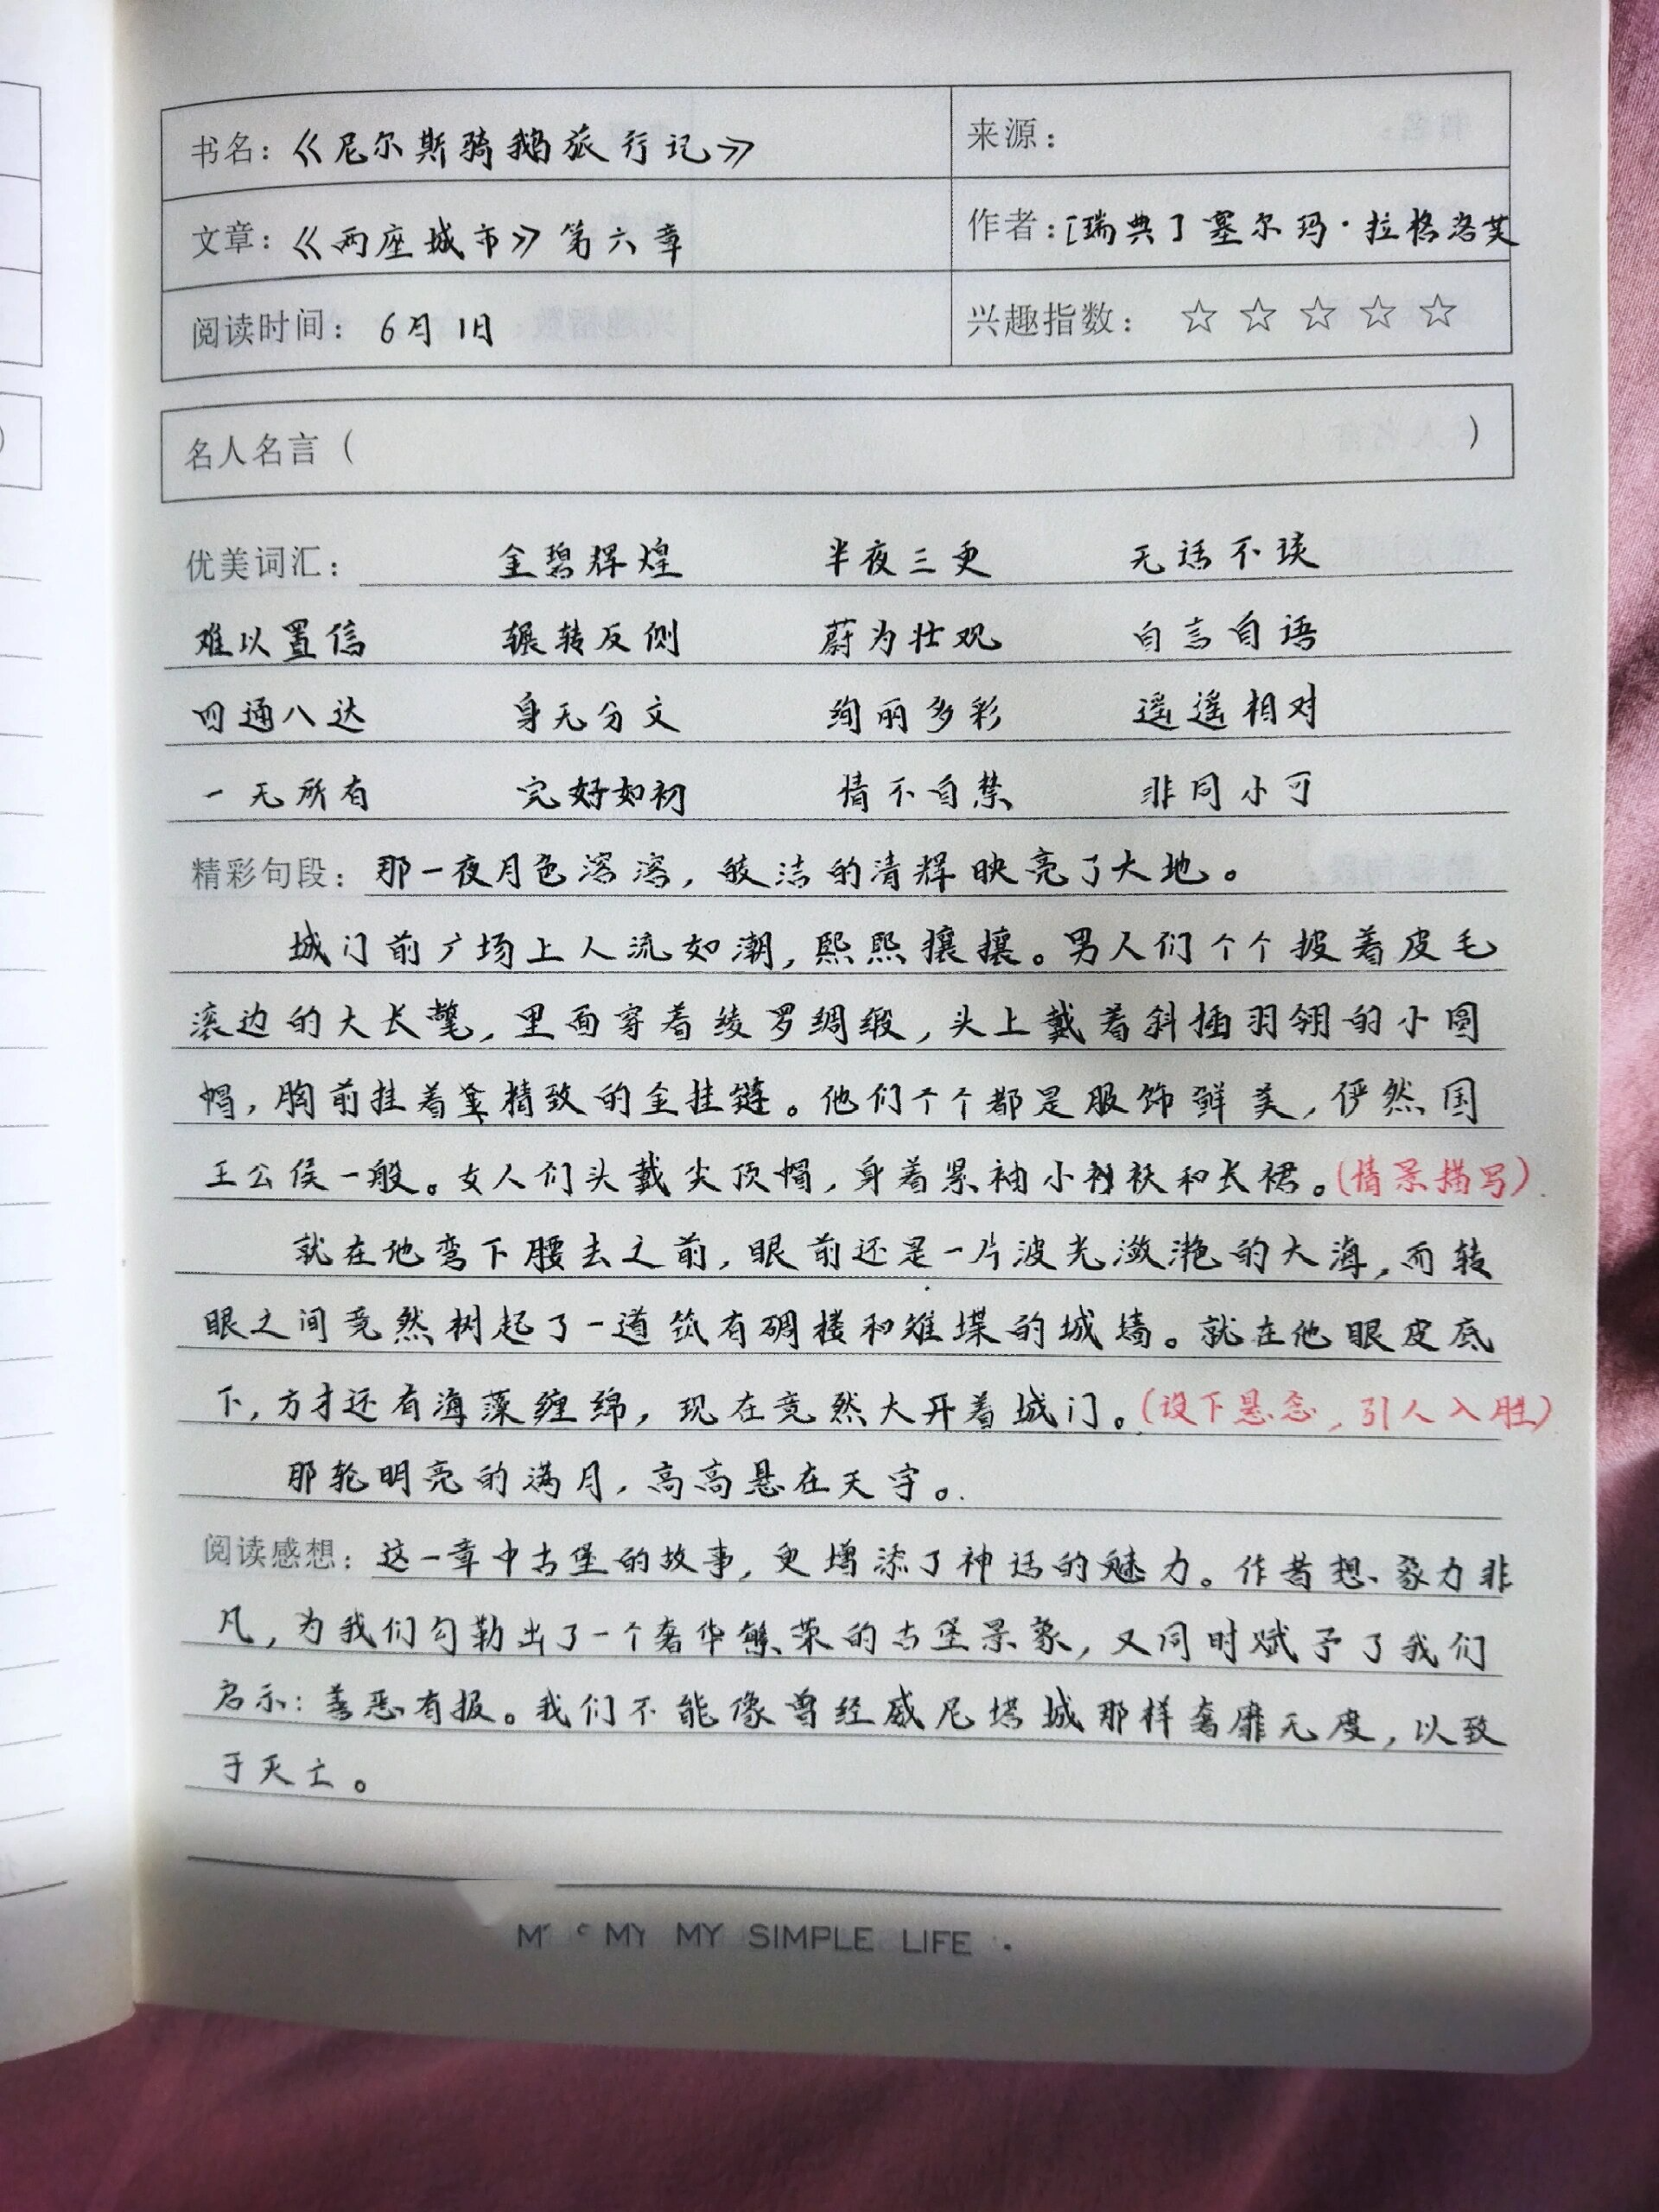 书名：《尼尔斯骑鹅旅行记》
来源：
文章：《两座城市》第六章
作者：[瑞典] 塞尔玛·拉格洛芙
阅读时间：6月1日
兴趣指数：☆ ☆ ☆ ☆ ☆
名人名言（ ）
优美词汇： 金碧辉煌 半夜三更 无话不谈
难以置信 辗转反侧 蔚为壮观 自言自语
四通八达 身无分文 绚丽多彩 遥遥相对
一无所有 完好如初 情不自禁 非同小可
精彩句段：那一夜月色溶溶，皎洁的清辉映亮了大地。
城门前广场上人流如潮，熙熙攘攘。男人们个个披着皮毛
滚边的大长氅，里面穿着绫罗绸缎，头上戴着斜插羽翎的小圆
帽，胸前挂着精致的金挂链。他们个个都是服饰鲜美，俨然国
王公侯一般。女人们头戴尖顶帽，身着紧袖小袄和长裙。（情景描写）
就在他弯下腰去之前，眼前还是一片波光潋滟的大海，而转
眼之间竟然树起了一道筑有碉楼和雉堞的城墙。就在他眼皮底
下，方才还有海藻缠绵，现在竟然大开着城门。（设下悬念，引人入胜）
那轮明亮的满月，高高悬在天宇。
阅读感想：这一章中古堡的故事，更增添了神话的魅力。作者想象力非
凡，为我们勾勒出了一个奢华繁荣的古堡景象，又同时赋予了我们
启示：善恶有报。我们不能像曾经威尼塔城那样奢靡无度，以致
于灭亡。
MY MY SIMPLE LIFE